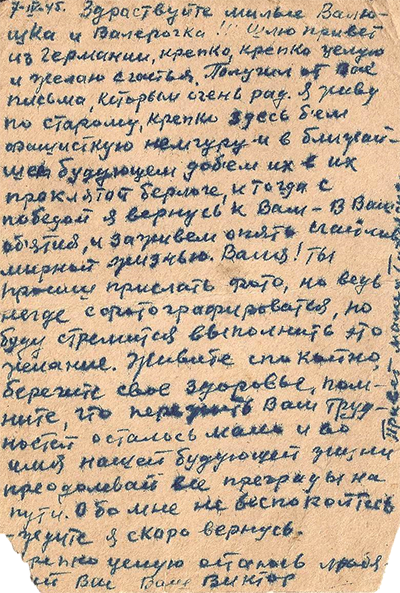 7-IV-45. Здраствуйте милые Валю-
шка и Валерочка!!! Шлю привет
из Германии, крепко, крепко целую
и желаю счастья. Получил от Вас
письма, которым очень рад. Я живу
по старому, крепко здесь бьем
фашисткую немчуру и в ближай-
шем будующем добьем их в их
проклятой берлоге, и тогда с
победой я вернусь к Вам - В Ваши
объятия, и заживем опять счастливой
мирной жизнью. Валя! Ты
просиш прислать фото, но ведь
негде сфотографироватся, но
буду стремится выполнить это
желание. Живите спокойно,
берегите свое здоровье, пом-
ните, что пережить Вам труд-
ностей осталось мало и во
имя нашей будующей жизни
преодолевай все преграды на
пути. Обо мне не беспокойтесь
ждите я скоро вернусь.
Крепко целую остаюсь любя-
щий Вас Ваш Виктор
Привет